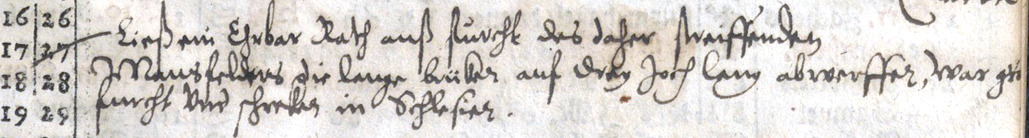 16 26
17 27 Ließ ein Ehrbar Rath auß furcht des daher streiffenden
18 28 Mansfelders die lange brüken auf drey Joch lang abwerffen, war gro
19 29 furcht vnd schreken in Schlesien.